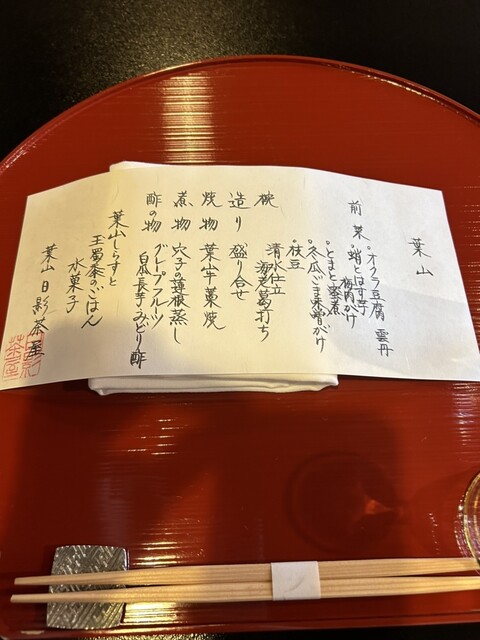 葉山
前菜 ・オクラ豆腐 雲丹
・蛸とはす芋
梅肉がけ
・とまと蜜煮
・冬瓜ごま味噌がけ
・枝豆
椀 清水仕立
海老葛打ち
造り 盛り合せ
焼物 葉牛藁焼
煮物 穴子の蓮根蒸し
酢の物 グレープフルーツ
白瓜長芋みどり酢
葉山しらすと
玉蜀黍のごはん
水菓子
葉山 日影茶屋